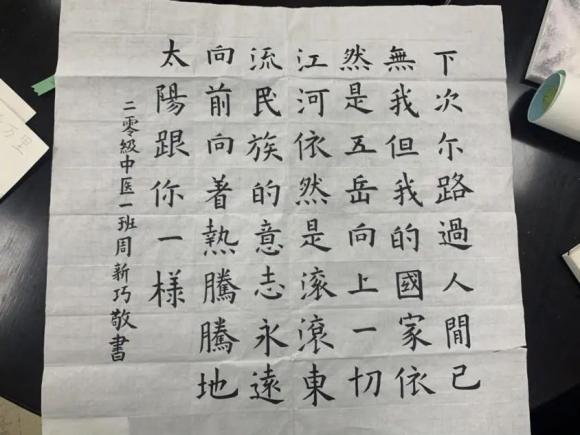 下次尔路過人間已
無我但我的國家依
然是五岳向上一切
江河依然是滚滚東
流民族的意志永遠
向前向着熱騰騰地
太陽跟你一樣
二零級中医一班周新巧敬書
万里